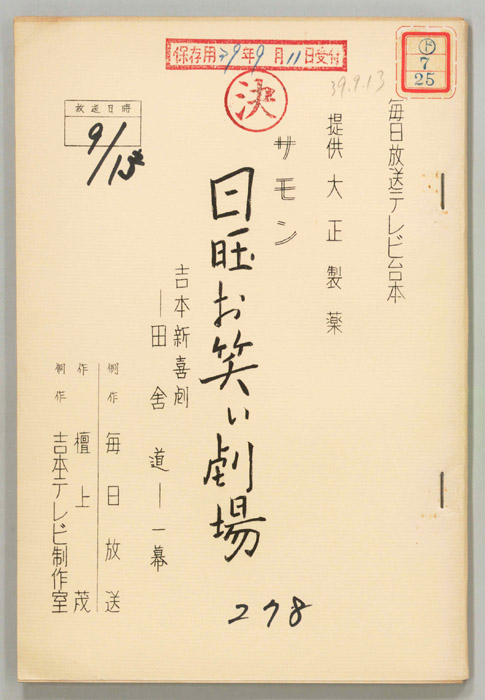 保存用39年9月11日受付
決
ト
7
25
39.9.13
毎日放送テレビ台本
提供大正製薬
サモン
日旺お笑い劇場
278
吉本新喜劇
―田舎道―一幕
放送日時
9/13
制作 毎日放送
作 檀上茂
制作 吉本テレビ制作室